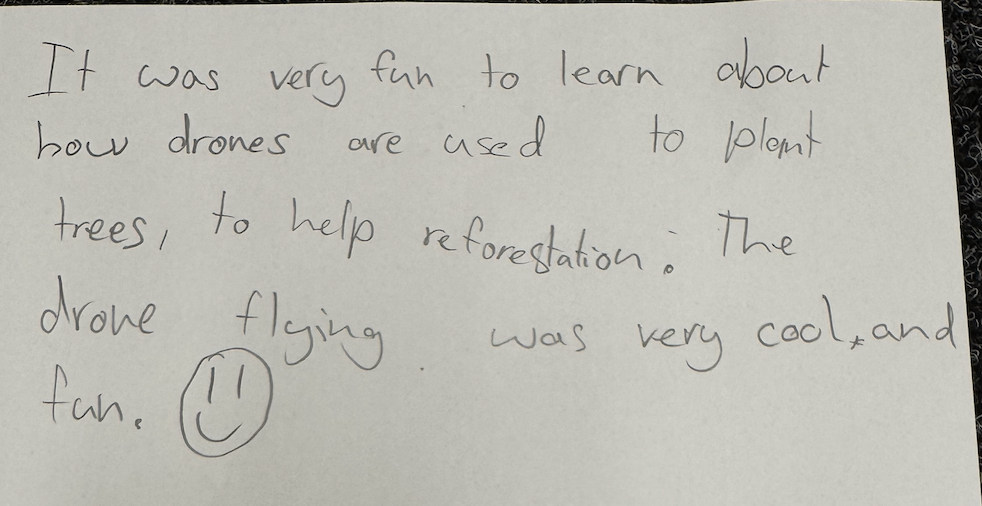 It was very fun to learn about
how drones are used to plant
trees, to help reforestation. The
drone flying was very cool, and
fun.